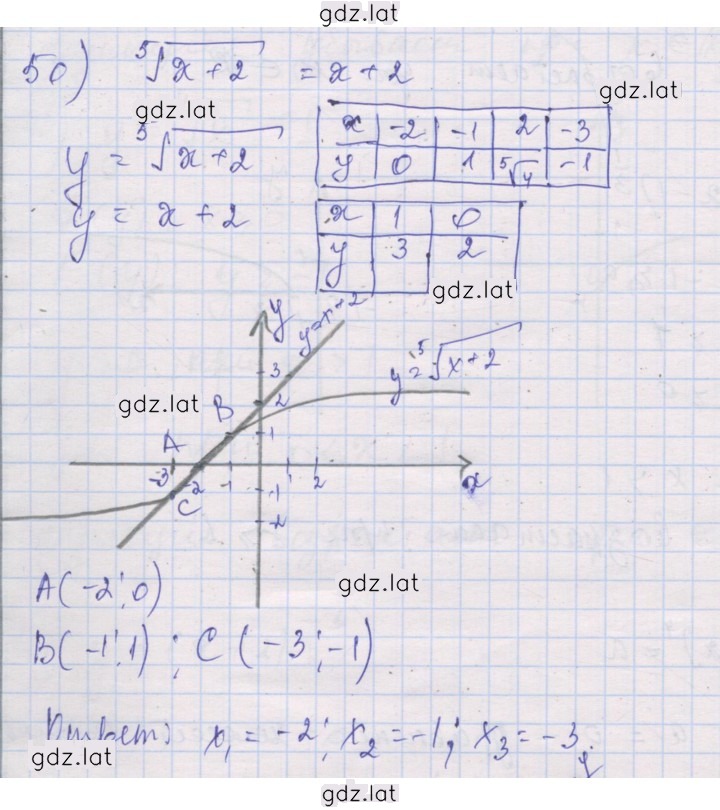 gdz.lat
50) ⁵√x+2 = x+2
gdz.lat
gdz.lat
y = ⁵√x+2
x | -2 | -1 | 2 | -3
y | 0 | 1 | ⁵√4 | -1
y = x+2
x | 1 | 0
y | 3 | 2
gdz.lat
y
y=x+2
y=⁵√x+2
3
gdz.lat
B
2
1
A
-3 -2 -1 1 2 x
C
-1
-2
gdz.lat
A(-2;0)
B(-1;1); C(-3;-1)
Ответ: x₁ = -2; x₂ = -1; x₃ = -3
gdz.lat
gdz.lat